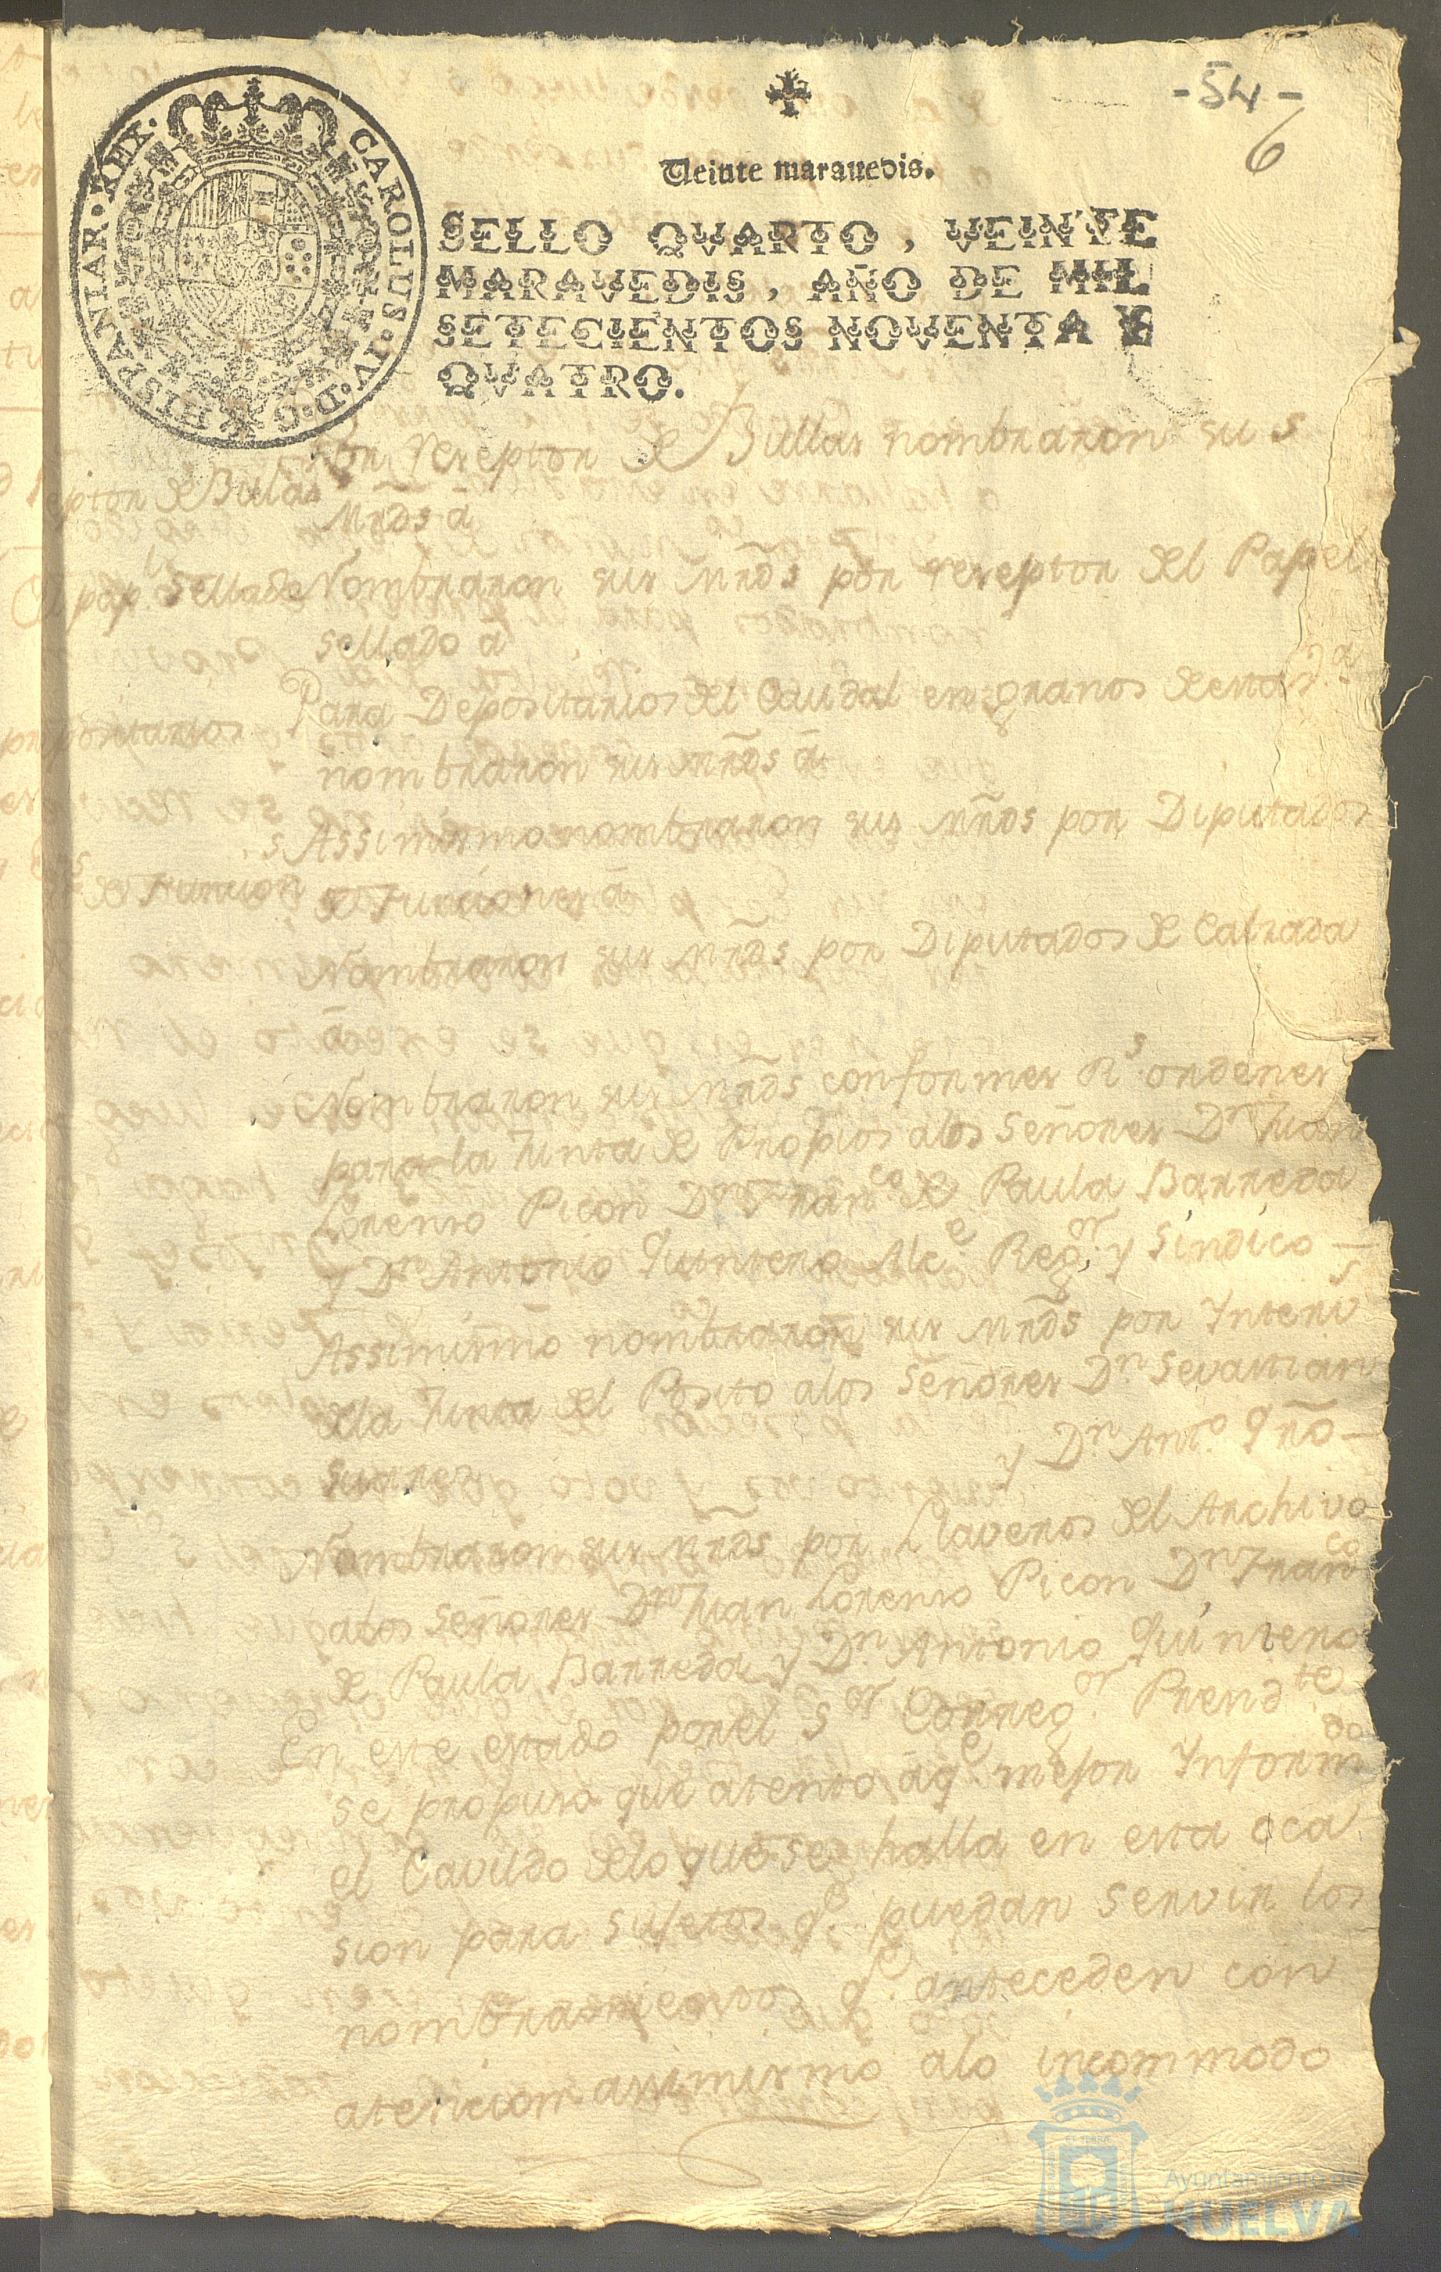 -54-
6
Veinte marauedis.
CAROLUS·IV·D·G·HISPANIAR·REX·
SELLO QVARTO, VEINTE
MARAVEDIS, AÑO DE MIL
SETECIENTOS NOVENTA Y
QVATRO.
Por Receptor de Bullas nombraron sus
eptor de Bulas
Mrds á
El pap.l Sellado
Nombraron sus Mrds por receptor del Papel
sellado á
Para Depositarios del Caudal en granos de esta V.a
Depositarios
nombraron sus Mrds á
Assimismo nombraron sus Mrds por Diputados
de Funcion
de Funciones á
Nombraron sus Mrds por Diputados de Calzada
á
Nombraron sus Mrds conformes Rs. ordenes
para la Junta de Propios alos Señores Dn. Juan
Lorenso Picon Dn. Franco. de Paula Barreda
y Dn. Antonio Quintero Alce. Regor. y Sindico
Assimismo nombraron sus Mrds por Interv
dela Junta del Posito alos Señores Dn. Sevastian
Suares y Dn. Anto. Qño
Nombraron sus Mrds por Llaveros del Archivo
alos Señores Dn. Juan Lorenso Picon Dn. Franco
de Paula Barreda y Dn. Antonio Quintero
En este estado por el Sor. Corregor. Presidte.
se propuso que atento áqe. mejor Informdo
el Cavildo delo que se halla en esta oca
sion para sujetos qe. puedan servir los
nombramientos qe. anteceden con
atencion assimismo alo incommodo
Ayuntamiento de
HUELVA